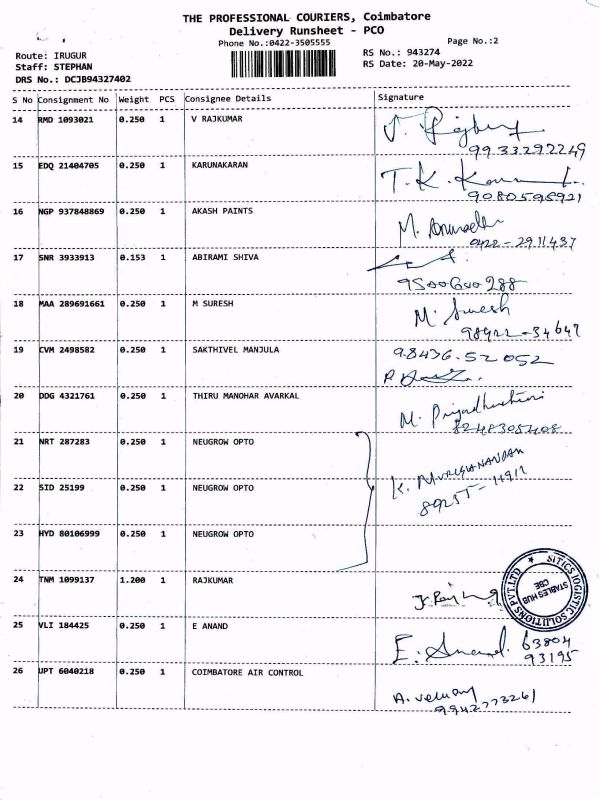 THE PROFESSIONAL COURIERS, Coimbatore
Delivery Runsheet - PCO
Phone No.:0422-3505555
Page No.:2
Route: IRUGUR
Staff: STEPHAN
DRS No.: DCJB94327402
RS No.: 943274
RS Date: 20-May-2022
S No Consignment No Weight PCS Consignee Details Signature
14 RMD 1093021 0.250 1 V RAJKUMAR
9933292249
15 EDQ 21404705 0.250 1 KARUNAKARAN T.K.
9080598921
16 NGP 937848869 0.250 1 AKASH PAINTS M.
0422-2911437
17 SNR 3933913 0.153 1 ABIRAMI SHIVA
9500600288
18 MAA 289691661 0.250 1 M SURESH M. Suresh
98422-34647
19 CVM 2498582 0.250 1 SAKTHIVEL MANJULA 98436.52052
20 DDG 4321761 0.250 1 THIRU MANOHAR AVARKAL M. Priyadharshini
8248305408
21 NRT 287283 0.250 1 NEUGROW OPTO
K. MURUGANANDAM
89255-11911
22 SID 25199 0.250 1 NEUGROW OPTO
23 HYD 80106999 0.250 1 NEUGROW OPTO
24 TNM 1099137 1.200 1 RAJKUMAR
SITICS LOGISTIC SOLUTIONS PVT.LTD
STABLES HUB
CBE
25 VLI 184425 0.250 1 E ANAND E. Anand. 63804
93195
26 UPT 6040218 0.250 1 COIMBATORE AIR CONTROL A.
9942773261